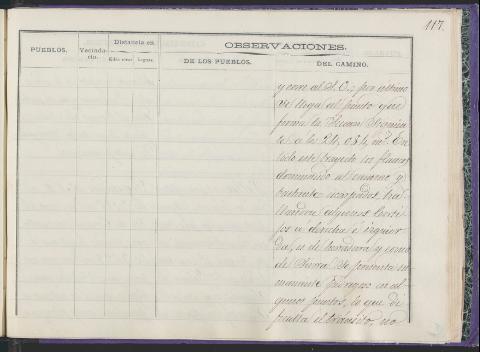 117.
PUEBLOS.
Vecinda-
rio.
Distancia en
Kilómetros
Leguas
OBSERVACIONES.
DE LOS PUEBLOS.
DEL CAMINO.
y corre al S. O.; por ultimo
se llega al punto que
forma la
te a los 24,034 m.s En
todo este trayecto los flancos
dominando al camino y
bastante escarpados, ha-
llandose algunos Corti-
jos a derecha é izquier-
da, es de herradura y como
de Sierra se presenta su-
mamente pedregoso en al-
gunos puntos, lo que di-
ficulta el transito, no